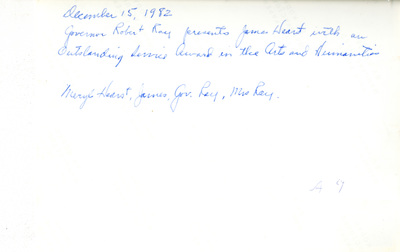 December 15, 1982
Governor Robert Ray presents James Hearst with an
Outstanding Service Award in the Arts and Humanities
Meryl Hearst, James, Gov. Ray, Mrs Ray.